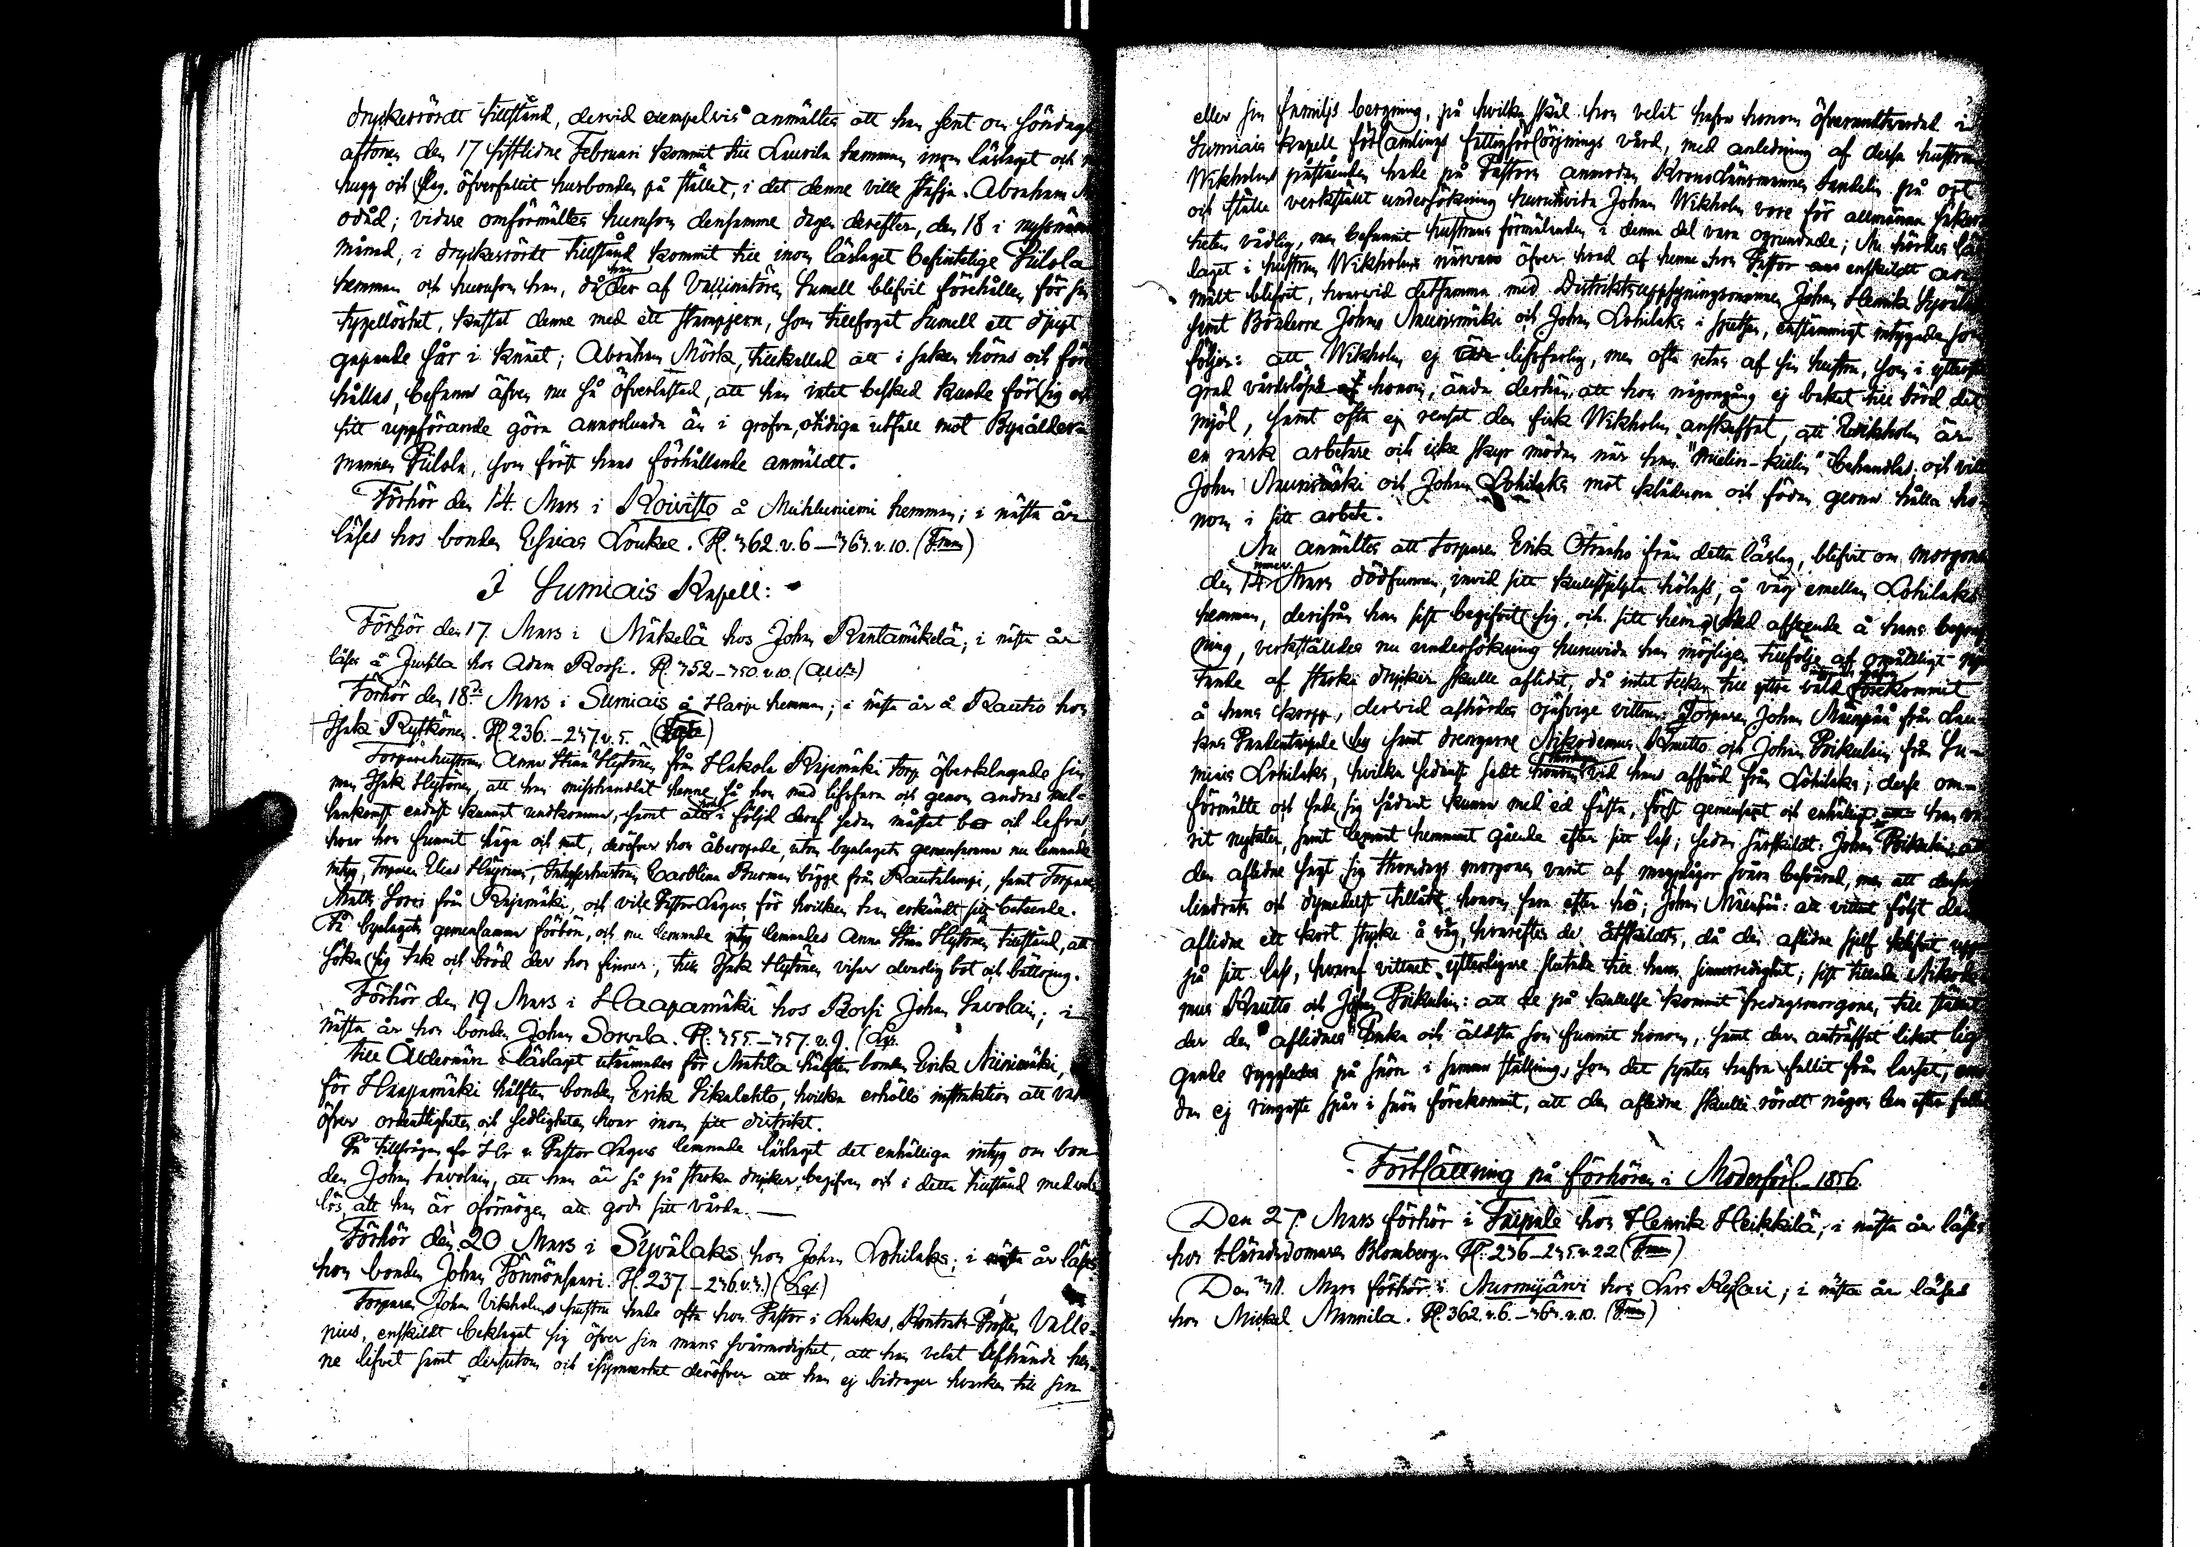 dryckesrördt tillstånd, dervid exempelvis anmältes att han sent om söndags
aftonen den 17 sistlidne Februari kommit till Laurila hemman inom läslaget och
hugg och slag öfverfallit husbonden på stället, i det denne ville Abraham
odåd; vidare omförmältes hurusom densamme dagen derefter, den 18 i nyssnämnde
månad, i dryckesrördt tillstånd kommit till inom läslaget befintelige Piilola
hemman och hurusom han, då han der af Vaccinatören Sumell blifvit förehållen för sin
tygellöshet, kastat denne med ett stampjern, som tillfogat Sumell ett djupt
gapande sår i knäet; Abraham Mörk, tillkallad att i saken höras och före
hållas, befanns äfven nu så öfverlastad, att han intet besked kunde för sig och
sitt uppförande göra annorlunda än i grofva, otidiga utfall mot Byålder-
mannen Piilola, som först hans förhållande anmäldt.
Förhör den 14. Mars i Koivisto å Muhluniemi hemman; i nästa år
läses hos bonden Esaias Loukee. Ps. 362. v. 6 – 363. v. 10. (Finn)
I Sumiais Kapell:
Förhör den 17. Mars i Mäkelä hos Johan Rantamäkelä; i nästa år
läses å Jussila hos Adam Rossi. Ps. 352 – 350. v. 10.
Förhör den 18de Mars i Sumiais å Harju hemman; i nästa år å Rautio hos
Isak Rytkönen. Ps. 236. – 237. v. 5.
Torparehustrun Anna Stina Hytönen från Hakola Rajamäki torp öfverklagade sin
man Isak Hytönen, att han misshandlat henne så hon med lifsfara och genom andras mel-
lankomst endast kunnat undkomma, samt att i följd deraf sedan måstat bo och lefva
hvar hon funnit hägn och mat, deröfver hon åberopade, utom byalagets gemensamma nu lemnade
intyg, Torparen Elias Häyrinen, Inhyseshustrun Carolina Burman bägge från Rautilampi, samt Torparen
Matts Sorri från Rajamäki, och vice Pastor Lagus för hvilken han erkändt sitt beteende.
På byalagets gemensamma förbön, och nu lemnade intyg lemnades Anna Stina Hytönen tillstånd, att
söka sig tak och bröd der hon finner, tills Isak Hytönen visar alvarlig bot och bättring.
Förhör den 19 Mars i Haapamäki hos Bonden Johan Savolain; i
nästa år hos bonden Johan Sorvala. Ps. 355. – 357. v. 9.
Till Ålderman i läslaget utnämndes för Mattila hälften bonden Erik Niinimäki,
för Haapamäki hälften bonden Erik Sikalehto, hvilka erhöllo instruktion att vaka
öfver ordentligheten och sedligheten hvar inom sitt distrikt.
På tillfrågan af Hr v. Pastor Lagus lemnade läslaget det enhälliga intyg om bon
den Johan Savolain, att han är så på starka drycker begifven och i detta tillstånd medvets
lös att han är oförmögen att gods sitt vårda. —
Förhör den 20 Mars i Syvälaks hos Johan Lohilaks; i nästa år läses
hos bonden Johan Pönnönsaari. Ps. 237. – 236. v. 3.)
Torparen Johan Vikholms hustru hade ofta hos Pastor i Laukas, Kontrakts-Prosten Valle-
nius, enskildt beklagat sig öfver sin mans svårmodighet, att han velat afhända hen-
ne lifvet samt dessutom och isynnerhet deröfver att han ej bidrager hvarken till sin
eller sin familjs bergning, på hvilka skäl hon velat hafva honom öfverantvardad i
Sumiais kapell församlings fattigförsörjnings vård, med anledning af dessa hustru
Wikholms påståenden hade på Pastors anmodan Kronolänsmannen Sandelin på ort
och ställe verkställt undersökning huruvida Johan Wikholm vore för allmänna säker-
heten vådlig, men befunnit hustruns förmälanden i denna del vara ogrundade; Nu hördes läs
laget i hustru Wikholms närvaro öfver hvad af henne hos Pastor enskildt an
mält blifvit, hvarvid detsamma med Distriktsuppsyningsmannen Johan Henrik
samt Bönderne Johan Muurimäki och Johan Lohilaks i spetsen, enstämmigt intygade som
följer: att Wikholm ej är lifsfarlig, men ofta retas af sin hustru, som i yttersta
grad vårdslösat honom, ända derhän, att hon någongång ej bakat till bröd det
mjöl, samt ofta ej rensat den fisk Wikholm anskaffat, att Wikholm är
en rask arbetare och icke skyr mödan när han "mielin-kielin" behandlas och ville
Johan Muurimäki och Johan Lohilaks mot kläderna och födan gerna hålla ho-
nom i sitt arbete.
Nu anmältes att Torparen Erik Otranho från detta läslag, blifvit om morgonen
den 14 Mars dödfunnen, invid sitt kullstjelpta hölass, å väg emellan Lohilaks
hemman, derifrån han sist begifvit sig, och sitt hem. Med afseende å hans begraf
ning, verkställdes nu undersökning huruvida han möjligen tillfölje af omåttligt nju
tande af starka drycker skulle aflidit, då intet tecken till yttre våld förekommit
å hans kropp, dervid afhördes ojäfvige vittnen: Torparen Johan Mäenpää från Lau-
kas samt drengarne Nikodemus Knutto och Johan Poikulain från Su-
miais Lohilaks, hvilka sednast sett honom vid hans affärd från Lohilaks; desse om-
förmälte och sade sig sådant kunna med ed fästa, först gemensamt och enhälligt han va
rit nykter, samt lemnat hemmanet gående efter sitt lass; sedan särskildt: Johan Poikulain: att
den aflidne sagt sig thorsdags morgonen varit af magplågor svåra besvärad, men att dessa
lindrats och dymedelst tillåtit honom fara efter hö; Johan Mäenpää: att vittnet följt den
aflidne ett kort stycke å väg, hvarefter de åtskildts, då den aflidne sjelf klifvit upp
på sitt lass, hvaraf vittnet ytterligare slutade till hans sinnesredighet; sist tillade Nikode
mus Knutto och Johan Poikulain: att de på kallelse kommit fredagsmorgonen till stället
der den aflidnes Enka och äldsta son funnit honom, samt den anträffat liket lig
gande på snön i samma ställning, som det syntes hafva fallit från lasset,
den ej ringaste spår i snön förekommit, att den aflidne skulle rördt någon lem efter fallet
Fortsättning på förhören i Moderförs. 1856.
Den 27. Mars förhör i Taipale hos Henrik Heikkilä; i nästa år läses
hos Häradsdomaren Blomberg. Ps. 236 – 235. v. 22 (Finn)
Den 31. Mars förhör i Nurmijärvi hos Lars Kesari; i nästa år läses
hos Mickel Mannila. Ps. 362. v. 6. – 363. v. 10. (Finn)